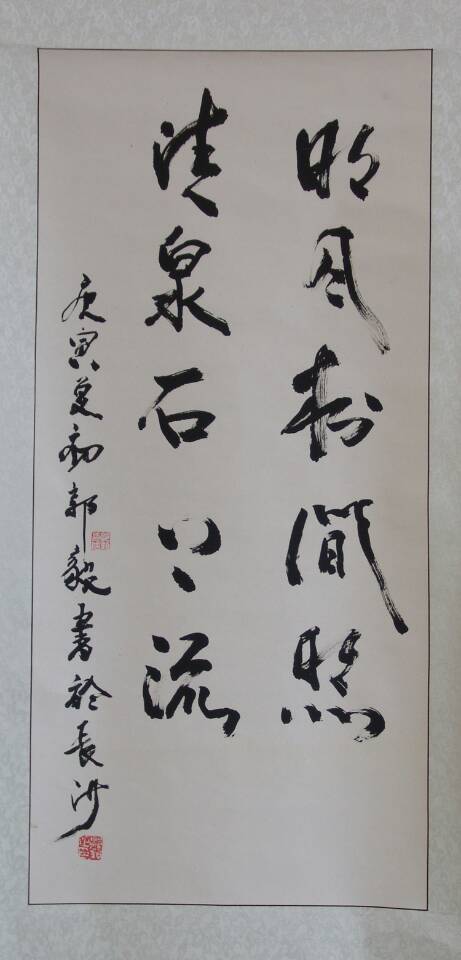 明月松间照
清泉石上流
庚寅夏初郭毅書於長沙